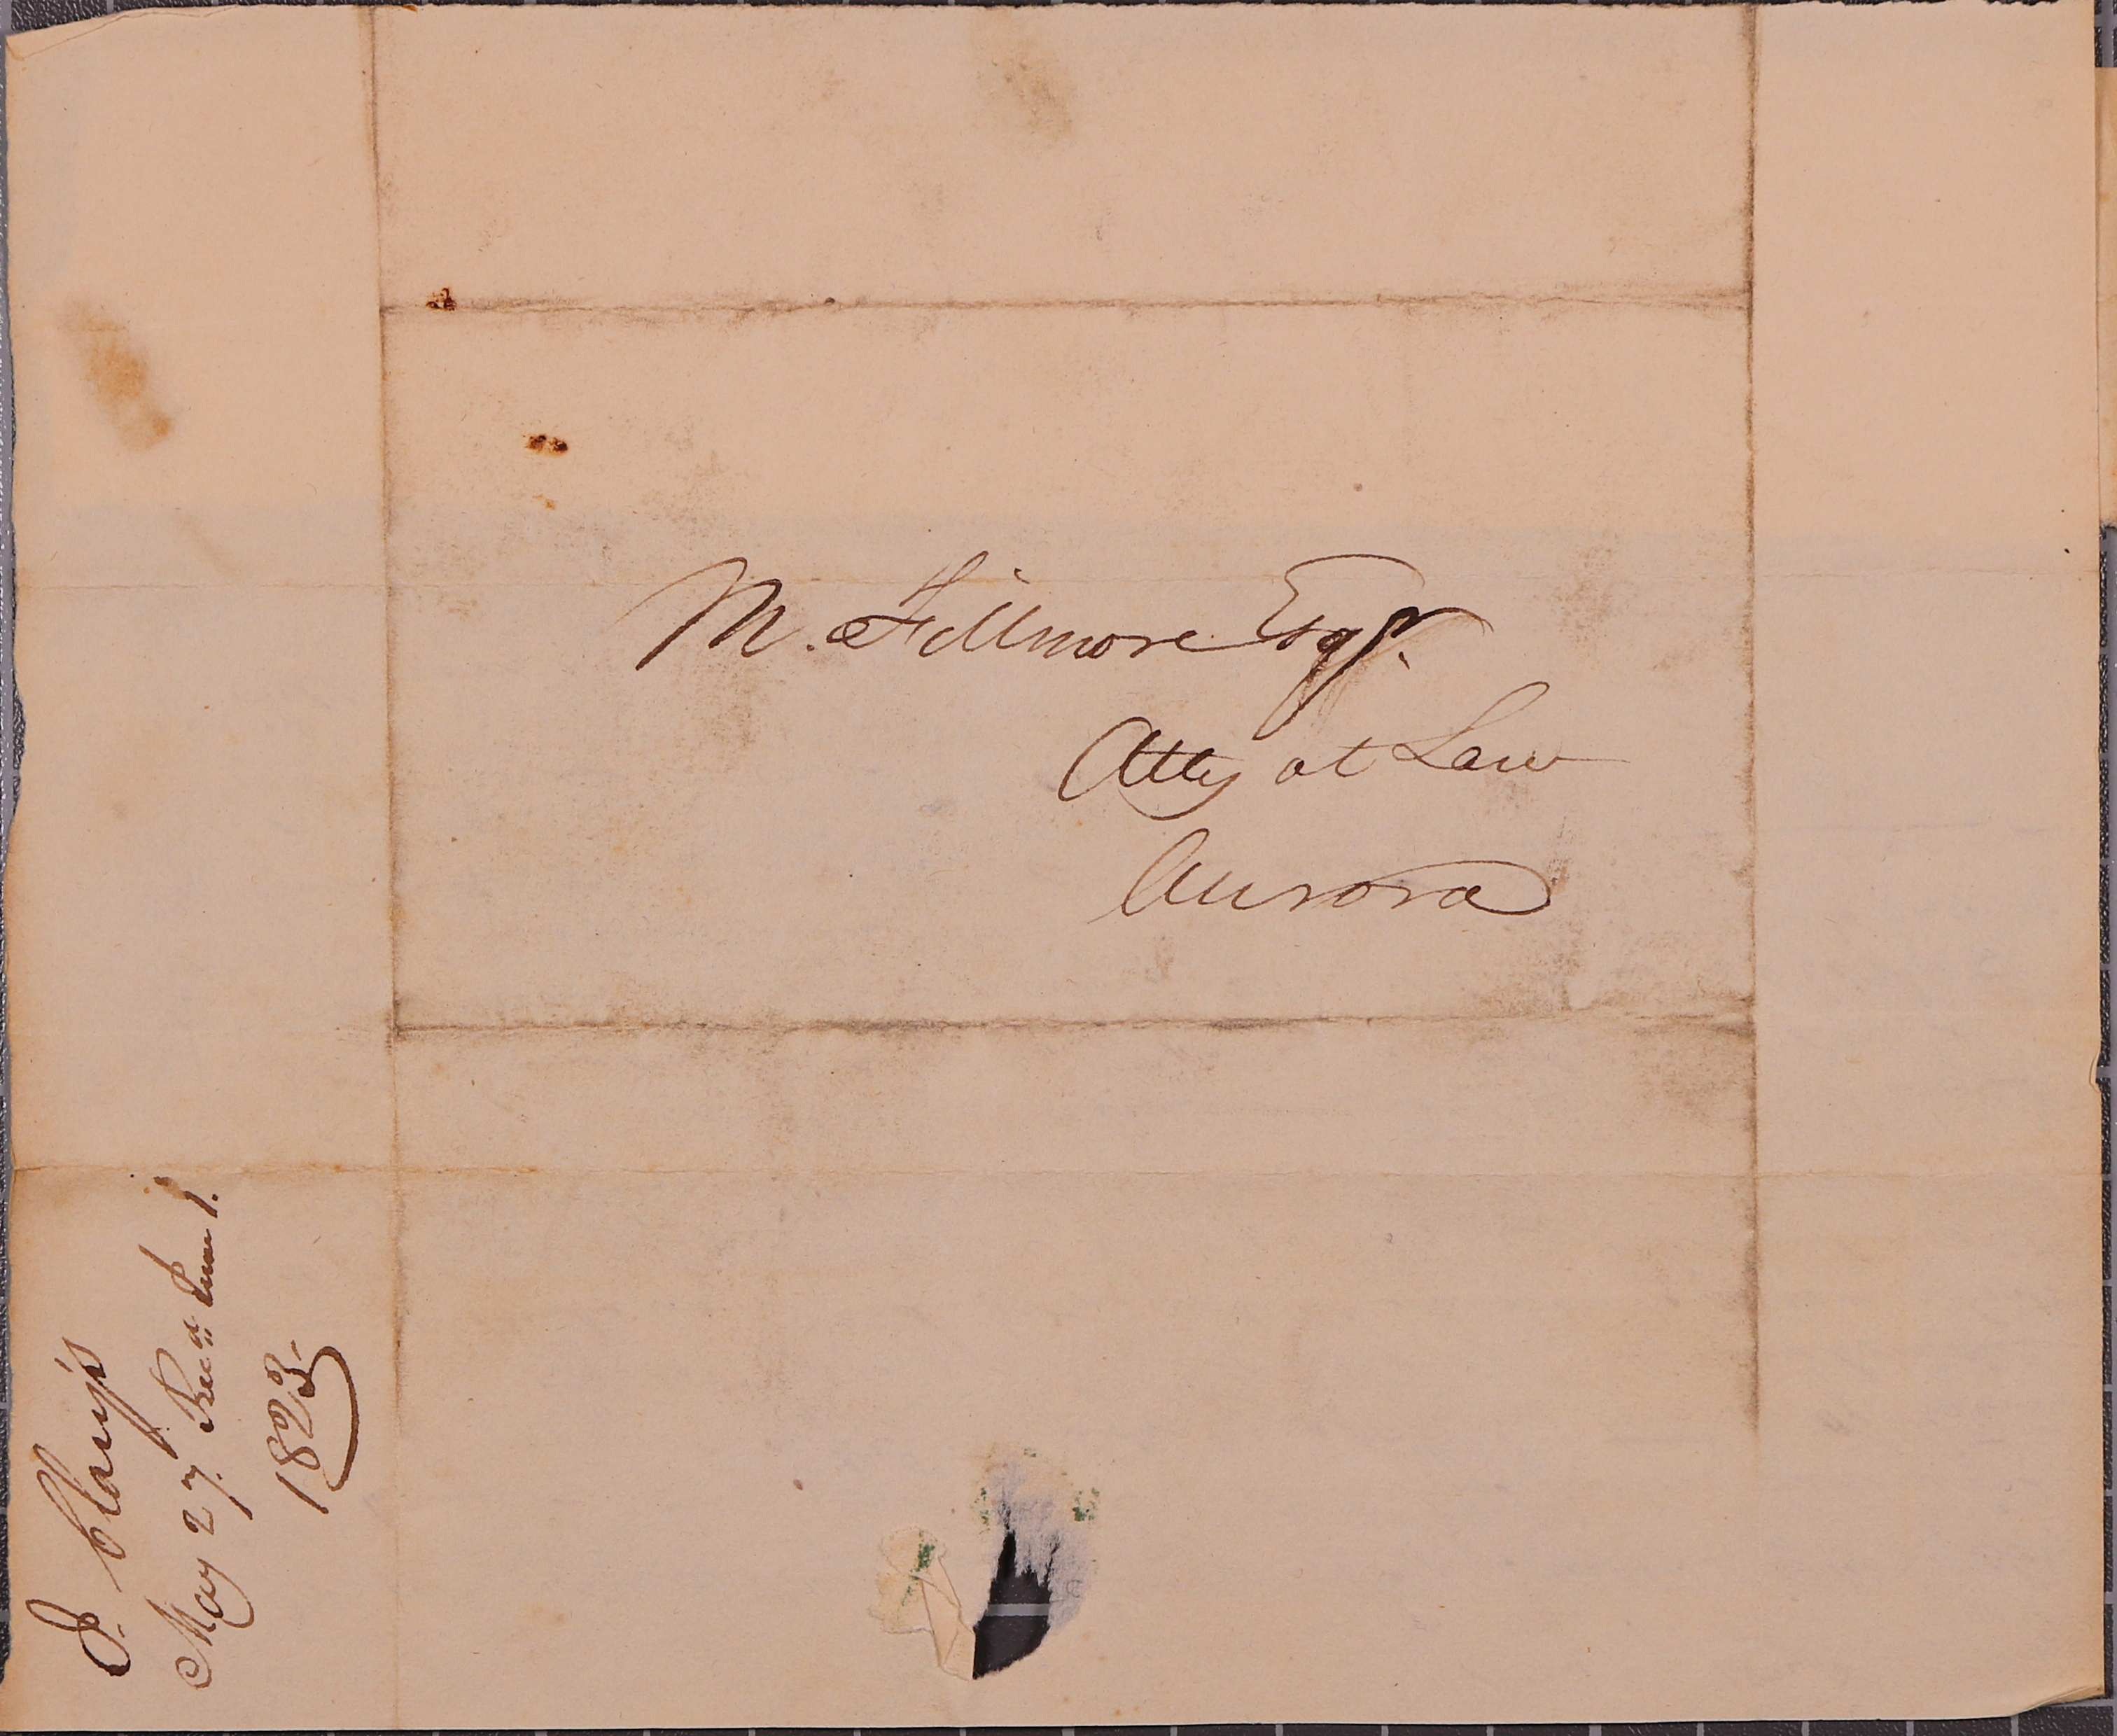 M. Fillmore Esqr.
Atty at Law
Aurora
J. Clary's
May 27. Recd. June 1.
1823.